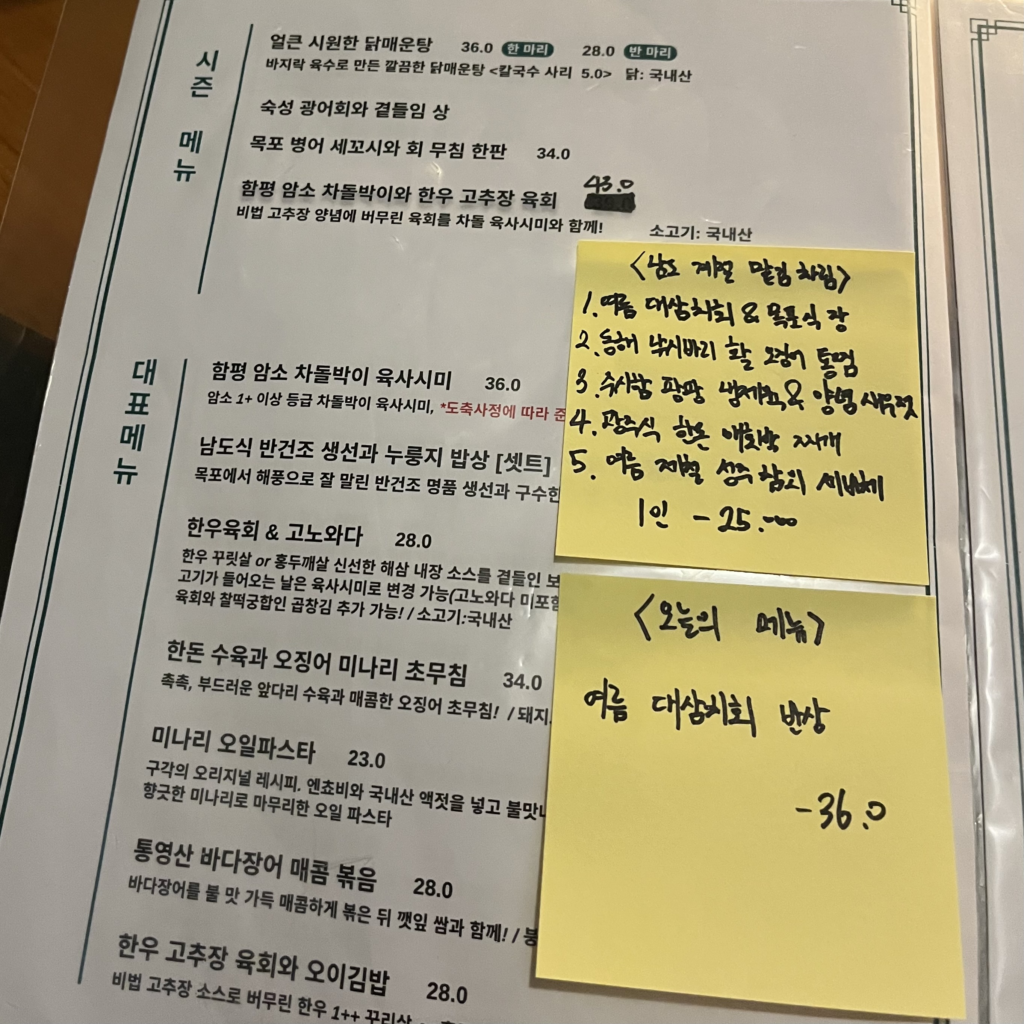 시즌 메뉴
얼큰 시원한 닭매운탕 36.0 한 마리 28.0 반 마리
바지락 육수로 만든 깔끔한 닭매운탕 <칼국수 사리 5.0> 닭: 국내산
숙성 광어회와 곁들임 상
목포 병어 세꼬시와 회 무침 한판 34.0
함평 암소 차돌박이와 한우 고추장 육회 43.0
비법 고추장 양념에 버무린 육회를 차돌 육사시미와 함께!
소고기: 국내산
대표메뉴
함평 암소 차돌박이 육사시미 36.0
암소 1+ 이상 등급 차돌박이 육사시미, *도축사정에 따라 준
남도식 반건조 생선과 누룽지 밥상 [셋트]
목포에서 해풍으로 잘 말린 반건조 명품 생선과 구수한
한우육회 & 고노와다 28.0
한우 꾸릿살 or 홍두깨살 신선한 해삼 내장 소스를 곁들인 보
고기가 들어오는 날은 육사시미로 변경 가능(고노와다 미포함
육회와 찰떡궁합인 곱창김 추가 가능! / 소고기:국내산
한돈 수육과 오징어 미나리 초무침 34.0
촉촉, 부드러운 앞다리 수육과 매콤한 오징어 초무침! / 돼지
미나리 오일파스타 23.0
구각의 오리지널 레시피. 엔쵸비와 국내산 액젓을 넣고 불맛
향긋한 미나리로 마무리한 오일 파스타
통영산 바다장어 매콤 볶음 28.0
바다장어를 불 맛 가득 매콤하게 볶은 뒤 깻잎 쌈과 함께! / 붕
한우 고추장 육회와 오이김밥 28.0
비법 고추장 소스로 버무린 한우 1++ 꾸리살
<남도 계절 맡김차림>
1. 여름 대삼치회 & 목포식 장
2. 동해 낚시바리 활 오징어 통찜
3. 수시함 팡팡 냉제육 & 양념 새우젓
4. 광주식 한돈 애호박 찌개
5. 여름 제철 성주 참외 셔벗
1인 - 25.000
<오늘의 메뉴>
여름 대삼치회 반상
-36.0